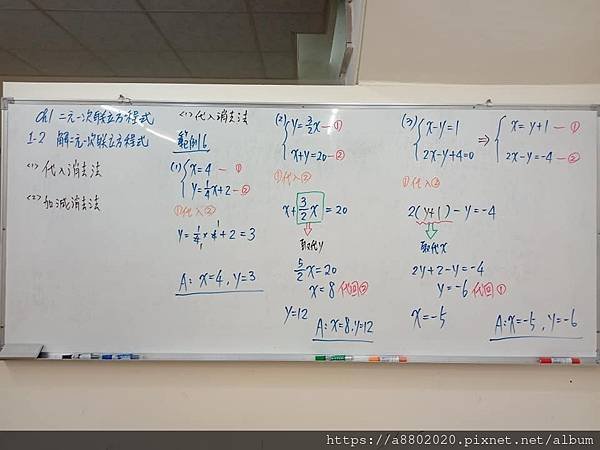 ch1 二元一次联立方程式
1-2 解二元一次联立方程式
<1> 代入消去法
<2> 加減消去法
<1> 代入消去法
範例6
(1) { x=4 —①
y=¼x+2 —②
①代入②
y=¼×4+2=3
A: x=4, y=3
(2) { y=3/2x —①
x+y=20 —②
①代入②
x+3/2x=20
取代y
5/2x=20
x=8 代回②
y=12
A: x=8, y=12
(3) { x-y=1
2x-y+4=0
⇒ { x=y+1 —①
2x-y=-4 —②
①代入②
2(y+1)-y=-4
取代x
2y+2-y=-4
y=-6 代回①
x=-5
A: x=-5, y=-6
https://a8802020.pixnet.net/album